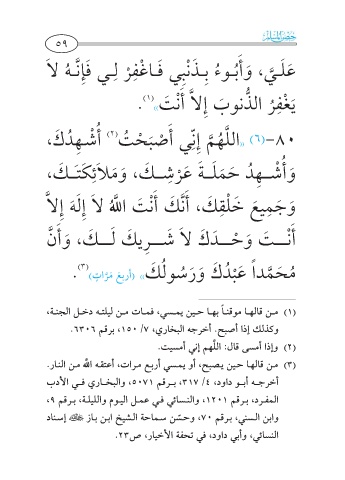 حصن المسلم
٥٩
عَلَيَّ، وَأَبُوءُ بِذَنْبِي فَاغْفِرْ لِي فَإِنَّهُ لاَ
يَغْفِرُ الذُّنوبَ إِلاَّ أَنْتَ»(١).
٨٠-(٦) «اللَّهُمَّ إِنِّي أَصْبَحْتُ(٢) أُشْهِدُكَ،
وَأُشْهِدُ حَمَلَةَ عَرْشِكَ، وَمَلاَئِكَتَكَ،
وَجَمِيعَ خَلْقِكَ، أَنَّكَ أَنْتَ اللَّهُ لَا إِلَهَ إِلاَّ
أَنْتَ وَحْدَكَ لاَ شَرِيكَ لَكَ، وَأَنَّ
مُحَمَّداً عَبْدُكَ وَرَسُولُكَ» (أربعَ مَرَّاتٍ)(٣).
(١) من قالها موقناً بها حين يمسي، فمات من ليلته دخل الجنة،
وكذلك إذا أصبح. أخرجه البخاري، ٧/ ١٥٠، برقم ٦٣٠٦.
(٢) وإذا أمسى قال: اللَّهم إني أمسيت.
(٣) من قالها حين يصبح، أو يمسي أربع مرات، أعتقه اللَّه من النار.
أخرجه أبو داود، ٤/ ٣١٧، برقم ٥٠٧١، والبخاري في الأدب
المفرد، برقم ١٢٠١، والنسائي في عمل اليوم والليلة، برقم ٩،
وابن السني، برقم ٧٠، وحسّن سماحة الشيخ ابن باز إسناد
النسائي، وأبي داود، في تحفة الأخيار، ص٢٣.